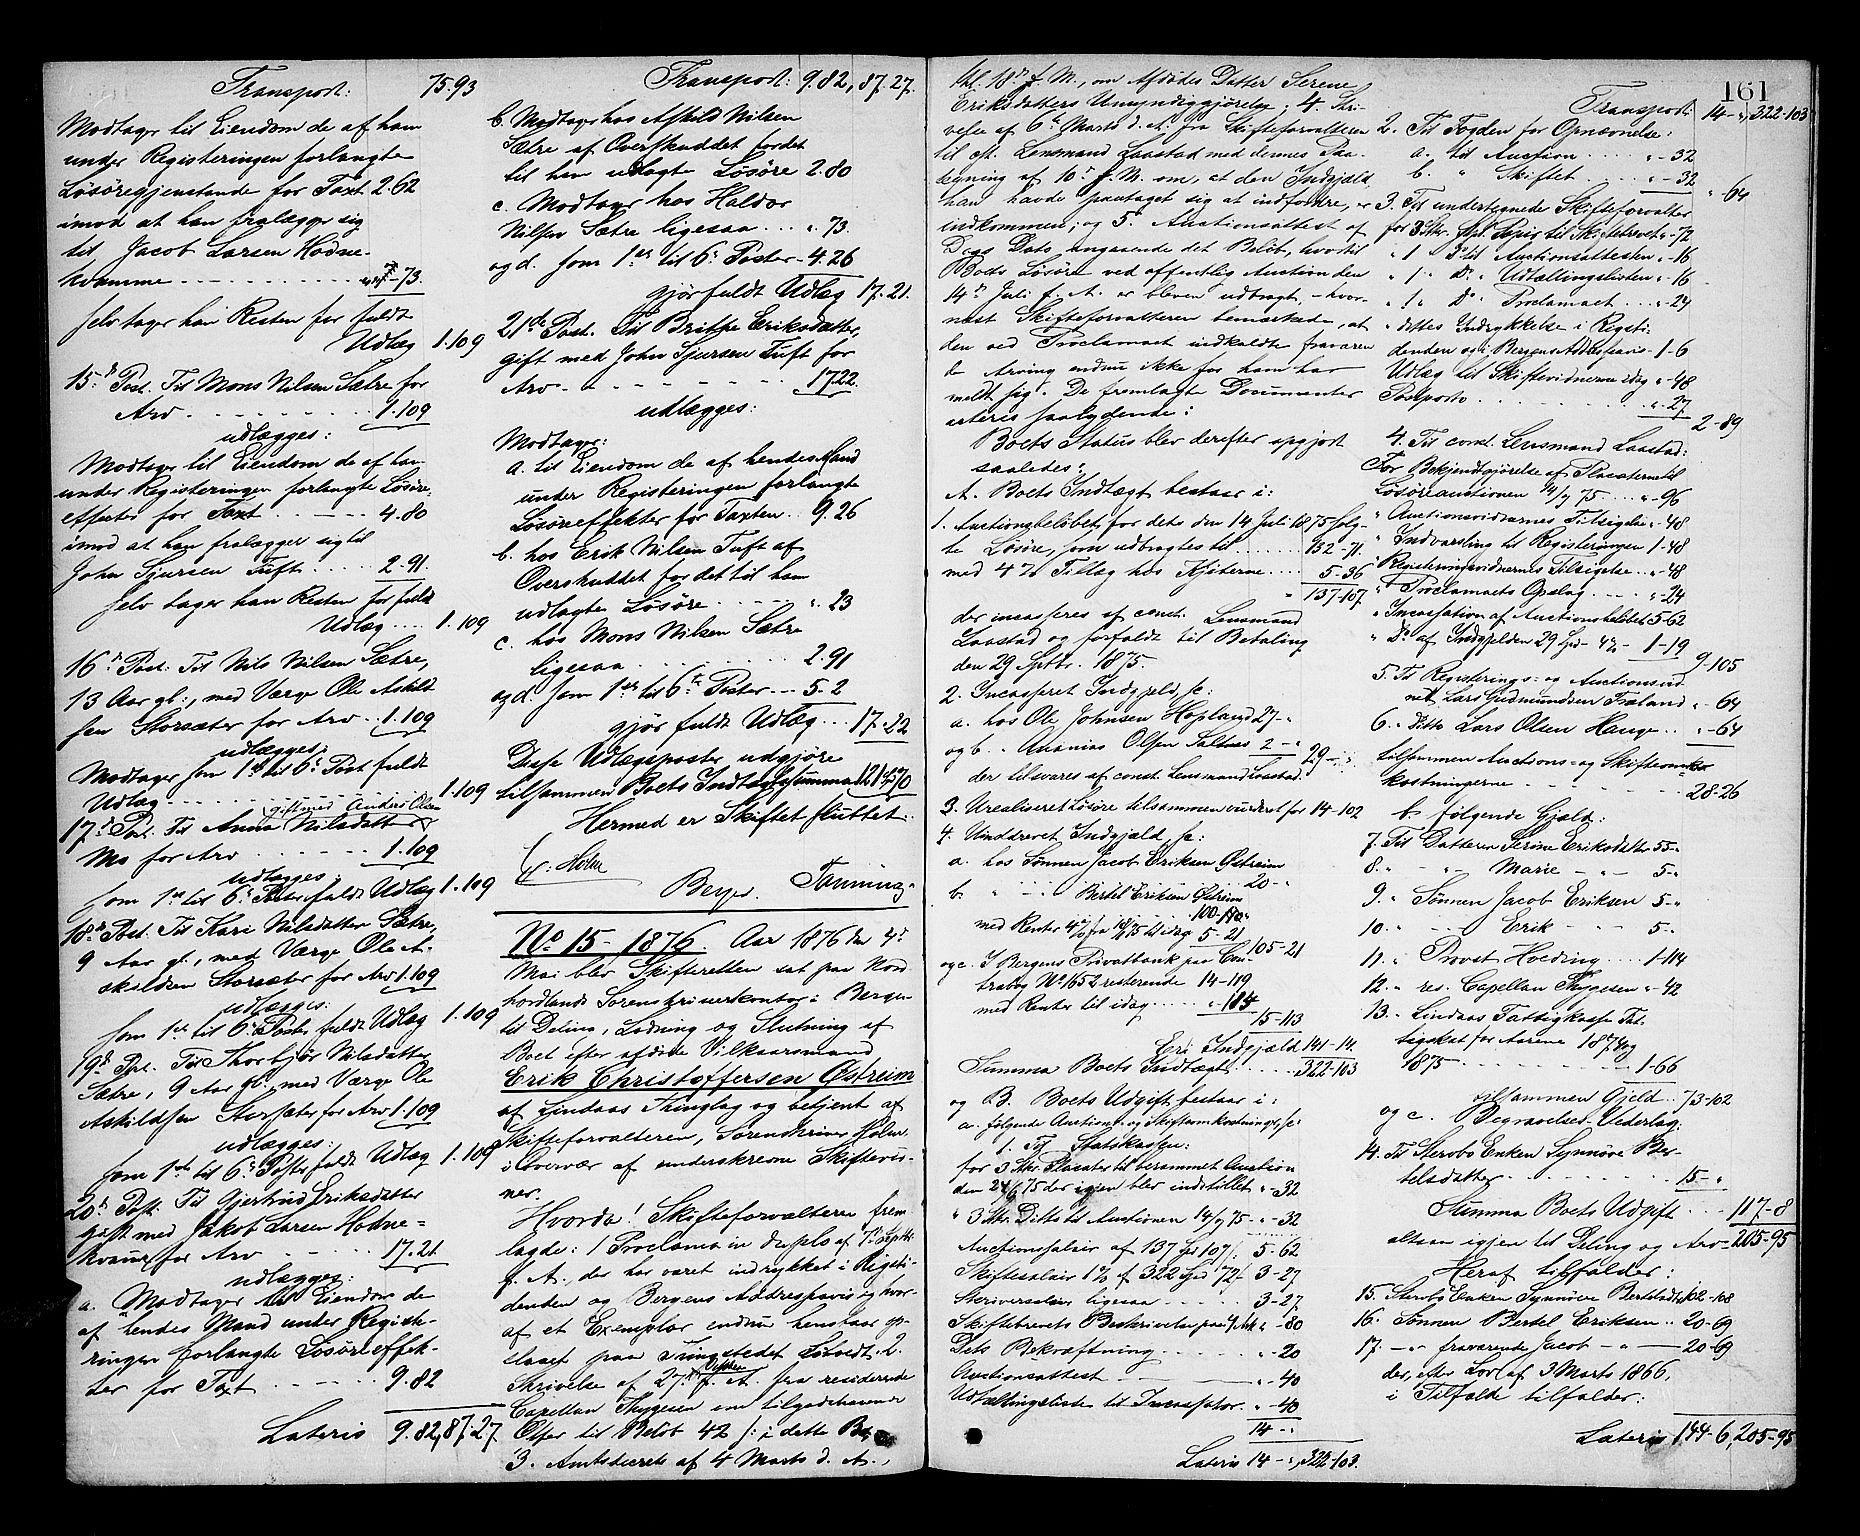 Transport: 75.93
Modtager til Eiendom de af ham
under Registeringen forlangte
Løsøregjenstande for Taxt 2.62
imod at han fralægger sig
til Jacob Larsen Hodne-
kvamme - 73.
selv tager han Resten for fuldt
Udlæg 1.109
15de Post. Til Mons Nilsen Sætre for
Arv 1.109
udlægges:
Modtager til Eiendom de af ham
under Registeringen forlangte Løsøre-
effecter for Taxt 4.80
imod at han fralægger sig til
John Sjursen Tuft 2.91.
selv tager han Resten for fuldt
Udlæg 1.109
16de Post. Til Nils Nilsen Sætre,
13 Aar gl., med Værge Ole Askild
sen Storsæter for Arv 1.109
udlægges:
Modtager som 1ste til 6te Post fuldt
Udlæg 1.109
gift med Anders Olsen
17de Post. Til Anna Nilsdatter
Mo for Arv 1.109
udlægges:
som 1ste til 6te Poster fuldt Udlæg 1.109
18de Post. Til Kari Nilsdatter Sætre,
9 Aar gl., med Værge Ole A-
skildsen Storsæter for Arv 1.109
udlægges:
som 1ste til 6te Poster fuldt Udlæg 1.109
19de Post. Til Thorbjør Nilsdatter
Sætre, 9 Aar gl., med Værge Ole
Askildsen Storsæter for Arv 1.109
udlægges:
som 1ste til 6te Poster fuldt Udlæg 1.109
20de Post. Til Gjertrud Eriksdatter
gift med Jakob Larsen Hodne=
kvam for Arv 17.21
udlægges:
a. Modtager til Eiendom de
af hendes Mand under Registe-
ringen forlangte Løsøreeffek-
ter for Taxt 9.82
Lateris 9.82, 87.27
Transport: 9.82, 87.27.
b. Modtager hos Askild Nilsen
Sætre af Overskuddet for det
til ham udlagte Løsøre 2.80
c. Modtager hos Haldor
Nilsen Sætre ligesaa ". 73.
og d. som 1ste til 6te Poster 4.26
gjør fuldt Udlæg 17.21.
21de Post. Til Brithe Eriksdatter,
gift med John Sjursen Tuft for
Arv 17.22.
udlægges:
Modtager:
a. til Eiendom de af hendes Mand
under Registeringen forlangte
Løsøreeffekter for Taxten 9.26
b. hos Erik Nilsen Tuft af
Overskuddet for det til ham
udlagte Løsøre ". 23
c. hos Mons Nilsen Sætre
ligesaa 2.91
og d. som 1ste til 6te Poster 5.2
gjør fuldt Udlæg 17.22
Disse Udlægsposter udgjøre
tilsammen Boets Indtægtssumma
Hermed er Skiftet sluttet.
Berger. Tønning
No 15-1876. Aar 1876 den 4de
Mai blev Skifteretten sat paa Nord
hordlands Sorenskriverkontor i Bergen
til Deling, Lodning og Slutning af
Boet efter afdøde Vilkaarsmand
Erik Christoffersen Østreim
af Lindaas Thinglag og betjent af
Skifteforvalteren, Sorenskriver
i Overvær af underskrevne Skiftevid-
ner.
Hvorda! Skifteforvalteren frem
lagde: 1 Proclama in duplo af 7de Septbr
f. A., der har været indrykket i Rigsti-
denden og Bergens Addressavis og hvor-
af et Exemplar endnu henstaar op-
slaaet paa Tingstedet. 2.
Skrivelse af 27de f. A. fra residerende
Capellan Thygesen om tilgodehavende
Offer til Beløb 42 ß i dette Bo,
3. Amtsdecrets af 4 Marts d. A.,
161
til 18de f. M., om Afdødes Datter Serene
Eriksdatters Umyndiggjørelse; 4. Skri-
velse af 6te Marts d. A. fra Skifteforvalteren
til cst. Lensmand Laastad med dennes Paa-
tegning af 10de f. M. om, at den Indgjæld,
han havde paataget sig at indfordre, er
indkommen; og 5. Auctionsattest af
D. as Dato angaaende det Beløb, hvortil
Boets Løsøre ved offentlig Auction den
14de Juli f. A. er bleven udbragt, - hvor-
næst Skifteforvalteren bemærkede, at
den ved Proclamaet indkaldte fraværen
de Arving endnu ikke for ham har
meldt sig. De fremlagte Documenter
acteres saalydende:
Boets Status blev derefter opgjort
saaledes:
A. Boets Indtægt bestaar i:
1. Auctionsbeløbet for dets den 14 Juli 1875 solg-
te Løsøre, som udbragtes til 132-71.
med 4% Tillæg hos Kjøberne 5-36
137-107.
der incasseres af const. Lensmand
Laastad og forfaldt til Betaling
den 29 Sptbr. 1875.
2. Incasseret Indgjæld, sc:
a. hos Ole Johnsen Hopland 27-"
og b. " Ananias Olsen Saltnes 2-" 29-"
der tilsvares af const. Lensmand Laastad.
3. Urealiseret Løsøre tilsammen vurderet for 14-102
4. Uinddrevet Indgjæld, sc:
a. hos Sønnen Jacob Eriksen Østreim
20-"
b. " Bertel Eriksen Østreim
100-"
med Renter 4% fra til idag 5-21 105-21
og c. I Bergens Privatbank paa Con-
trabog No 1652 resterende 14-119
med Renter til idag
15-113
Er: Indgjæld 141-14.
Summa Boets Indtægt 322-103
og B. Boets Udgift bestaar i:
a. følgende Auctions- og Skifteomkostninger, sc:
1. Til Statskassen:
for 3 Stkr. Placater til berammet Auction
den 24/6 75 der igjen blev indstillet "-32
" 3 Stkr. Ditto til Auctionen 14/7 75 "-32
Auctionssalair af 137 Spd 107 ß 5-62
Skiftesalair 1% af 322 Spd 72 ß 3-27
Skriversalair ligesaa 3-27
Skiftebrevets Beskrivelse paa "-80
Dets Bekræftning "-20
Auctionsattest "-40
Udtællingsliste til Incassator "-40
14-"
Lateris 14-", 322-103.
Transport: 14-", 322-103
2. Til Fogden for Opnævnelse:
a. til Auction "-32
b. " Skiftet "-32
"-64
3. Til undertegnede Skifteforvalter
for 3 Stkr. Spl. Papir til Skiftebrevet "-72
" 1 D. til Auctionsattesten "-16
" 1 " Do " Udtællingslisten "-16
" 1 " Do " Proclamaet "-24
" dettes Indrykkelse i Rigsti-
denden og i Bergens Addresseavis 1-6
Udlæg til Skiftevidnerne idag "-48
Postporto "-27
2-89
4. Til const. Lensmand Laastad:
For Bekjendtgjørelse af Placaterne til
Løsøreauctionen 14/7 75 "-96
" Auctionsvidnernes Tilsigelse "-48
" Indvarsling til Registeringen 1-48
" Registeringsvidnernes Tilsigelse "-48
" Proclamaets Opslag "-24
" Incassation af Auctionsbeløbet 5-62
" Do af Indgjælden 29 Spd 4% 1-19
9-105
5. Til Registerings- og Auctionsvid
net Lars Gudmundsen Fæland "-64
6. " Ditto Lars Olsen Hauge "-64
tilsammen Auctions- og Skifteom-
kostningerne 28-26
b. følgende Gjæld:
7. Til Datteren Serene Eriksdatter 55-"
8. " - " Marie - " - 5-"
9. " Sønnen Jacob Eriksen 5-"
10. " - " Erik - " - 5-"
11. " Provst Hveding 1-114
12. " res. Capellan Thygesen "-42
13. " Lindaas Fattigkasse Fat-
tigskat for Aarene 1874 og
1875 1-66
tilsammen Gjeld 73-102
og c. Begravelses-Vederlag:
14. Til Stervbo Enken Synnøve Ber-
telsdatter 15-"
Summa Boets Udgift 117-8
altsaa igjen til Deling og Arv 205-95
Heraf tilfalder:
15. Stervbo Enken Synnøve Bertelsdtr 102-108
16. Sønnen Bertel Eriksen 20-69
17. -"- fraværende Jacob -"- 20-69
der, efter Lov af 3 Marts 1866,
i Tilfælde tilfalder:
Lateris 144-6, 205-95